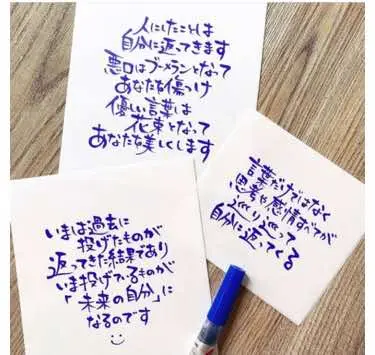 人にしたことは
自分に返ってきます
悪口はブーメランとなって
あなたを傷つけ
優しい言葉は
花束となって
あなたを美しくします
言葉だけではなく
思考や感情すべてが
巡り巡って
自分に返ってくる
いまは過去に
投げたものが
返ってきた結果であり
いま投げているものが
「未来の自分」に
なるのです